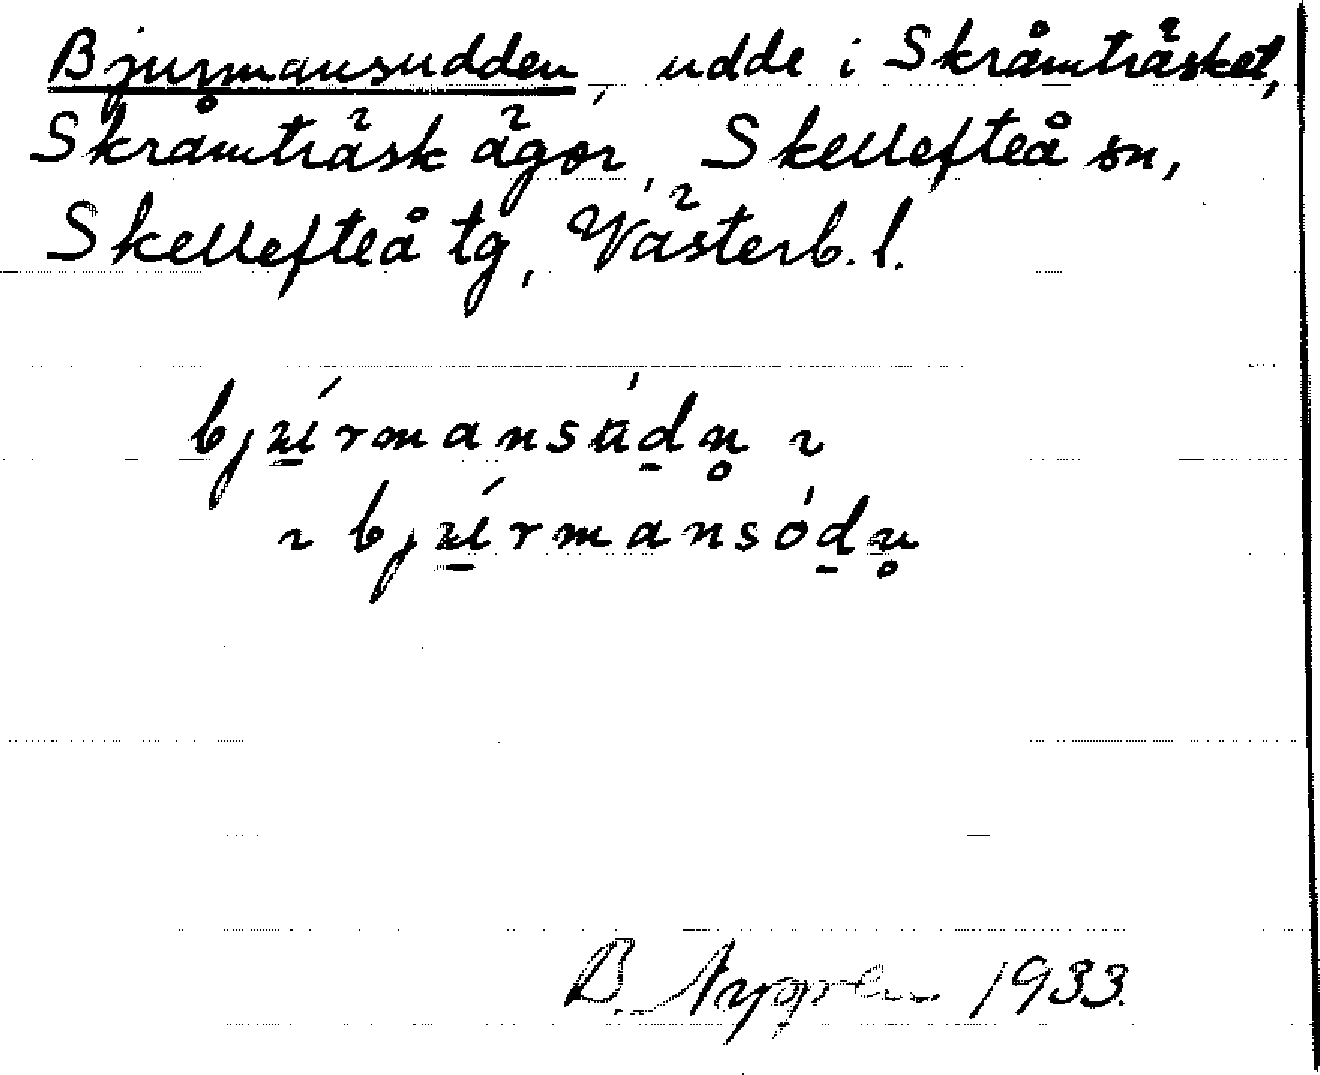 Bjurmansudden, udde i Skråmträsket,
Skråmträsk ägor, Skellefteå sn,
Skellefteå tg, Västerb. l.
bjú̱rmansúḏn̥ ~
~ bjú̱rmansóḏn̥
B. Nygren 1933.